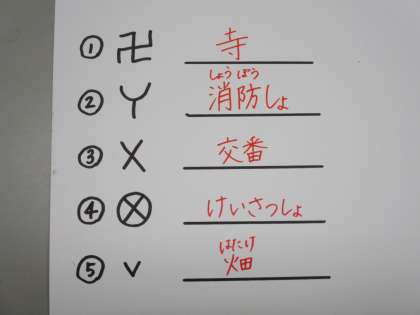 ① 卍 寺
しょうぼう
② Y 消防しょ
③ X 交番
④ ⊗ けいさつしょ
はたけ
⑤ v 畑